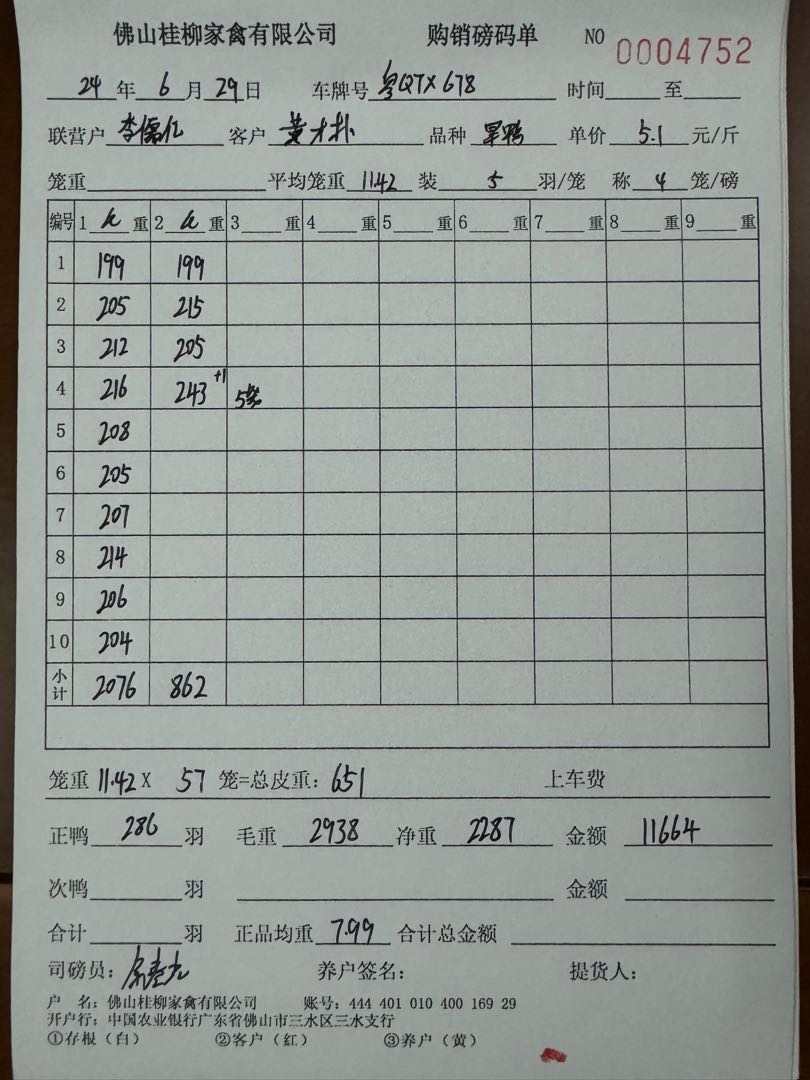 佛山桂柳家禽有限公司 购销磅码单 NO 0004752
24 年 6 月 29 日 车牌号 粤QTX678 时间 至
联营户 李儒亿 客户 黄才扑 品种 旱鸭 单价 5.1 元/斤
笼重 平均笼重 11.42 装 5 羽/笼 称 4 笼/磅
编号 1 重 2 重 3 重 4 重 5 重 6 重 7 重 8 重 9 重
1 199 199
2 205 215
3 212 205
4 216 243 +1 5笼
5 208
6 205
7 207
8 214
9 206
10 204
小计 2076 862
笼重 11.42 X 57 笼=总皮重: 651 上车费
正鸭 286 羽 毛重 2938 净重 2287 金额 11664
次鸭 羽 金额
合计 羽 正品均重 7.99 合计总金额
司磅员: 养户签名: 提货人:
户 名: 佛山桂柳家禽有限公司 账号: 444 401 010 400 169 29
开户行: 中国农业银行广东省佛山市三水区三水支行
①存根(白) ②客户(红) ③养户(黄)